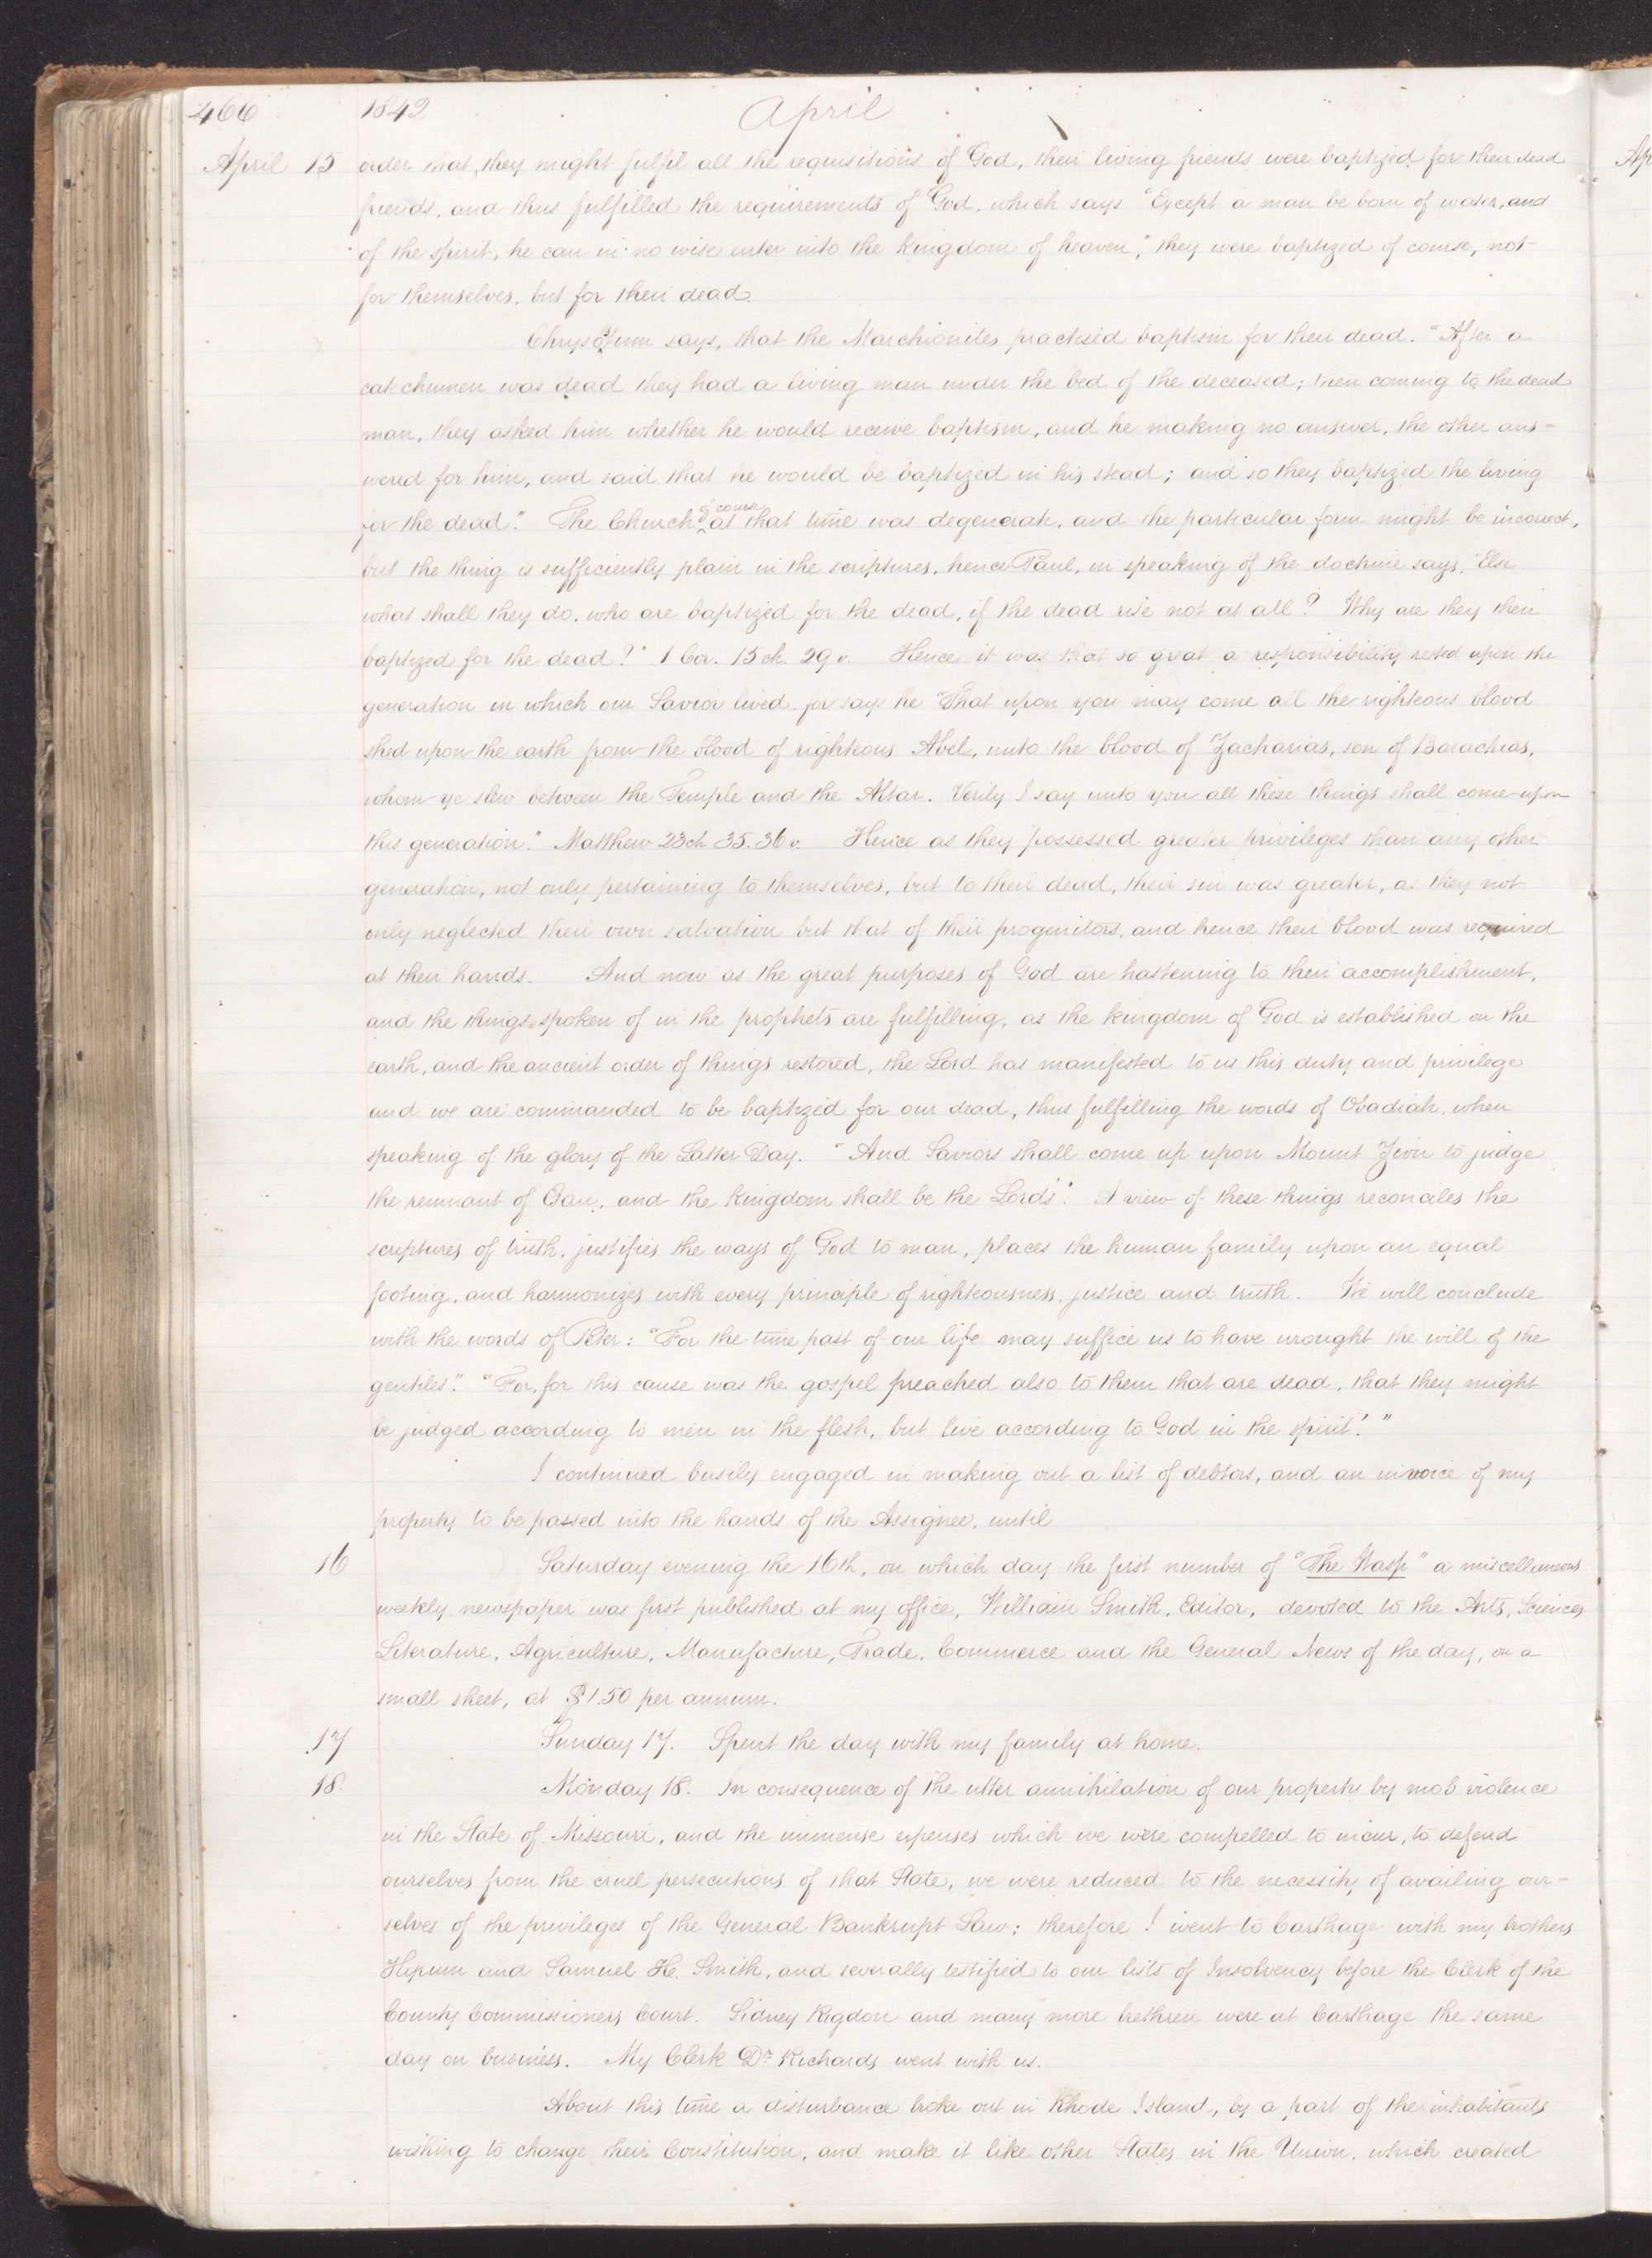 466 1842 April
April 15 order that, they might fulfil all the requisitions of God, their living friends were baptized for their dead
friends, and thus fulfilled the requirements of God, which says "Except a man be born of water, and
of the spirit, he can in no wise enter into the kingdom of heaven," they were baptized of course, not
for themselves, but for their dead.
Chrysotum says, that the Marchionites practised baptism for their dead. "After a
catechumen was dead they had a living man under the bed of the deceased; then coming to the dead
man, they asked him whether he would receive baptism, and he making no answer, the other ans-
wered for him, and said that he would be baptized in his stead; and so they baptized the living
for the dead." The Church of course at that time was degenerate, and the particular form might be incorrect,
but the thing is sufficiently plain in the scriptures, hence Paul, in speaking of the doctrine says, "Else
what shall they do, who are baptized for the dead, if the dead rise not at all? Why are they then
baptized for the dead?" 1 Cor. 15 ch. 29 v. Hence it was that so great a responsibility rested upon the
generation in which our Savior lived, for says he "That upon you may come all the righteous blood
shed upon the earth from the blood of righteous Abel, unto the blood of Zacharias, son of Barachias,
whom ye slew between the Temple and the Altar. Verily I say unto you all these things shall come upon
this generation." Matthew 23 ch 35. 36 v. Hence as they possessed greater privileges than any other
generation, not only pertaining to themselves, but to their dead, their sin was greater, as they not
only neglected their own salvation but that of their progenitors, and hence their blood was required
at their hands. And now as the great purposes of God are hastening to their accomplishment,
and the things spoken of in the prophets are fulfilling, as the kingdom of God is established on the
earth, and the ancient order of things restored, the Lord has manifested to us this duty and privilege
and we are commanded to be baptized for our dead, thus fulfilling the words of Obadiah, when
speaking of the glory of the Latter Day. "And Saviors shall come up upon Mount Zion to judge
the remnant of Esau, and the kingdom shall be the Lord's". A view of these things reconciles the
scriptures of truth, justifies the ways of God to man, places the human family upon an equal
footing, and harmonizes with every principle of righteousness, justice and truth. We will conclude
with the words of Peter: "For the time past of our life may suffice us to have wrought the will of the
gentiles". "For, for this cause was the gospel preached also to them that are dead, that they might
be judged according to men in the flesh, but live according to God in the spirit."
I continued busily engaged in making out a list of debtors, and an invoice of my
property to be passed into the hands of the Assignee, until
16 Saturday evening the 16th, on which day the first number of "The Wasp" a miscellaneous
weekly newspaper was first published at my office, William Smith, Editor, devoted to the Arts, Sciences
Literature, Agriculture, Manufacture, Trade, Commerce and the General News of the day, on a
small sheet, at $1.50 per annum.
17 Sunday 17. Spent the day with my family at home.
18. Monday 18. In consequence of the utter annihilation of our property by mob violence
in the State of Missouri, and the immense expenses which we were compelled to incur, to defend
ourselves from the cruel persecutions of that State, we were reduced to the necessity of availing our-
selves of the privileges of the General Bankrupt Law; therefore I went to Carthage with my brothers
Hyrum and Samuel H. Smith, and severally testified to our lists of Insolvency before the Clerk of the
County Commissioners Court. Sidney Rigdon and many more brethren were at Carthage the same
day on business. My Clerk Dr. Richards went with us.
About this time a disturbance broke out in Rhode Island, by a part of the inhabitants
wishing to change their Constitution, and make it like other States in the Union, which created